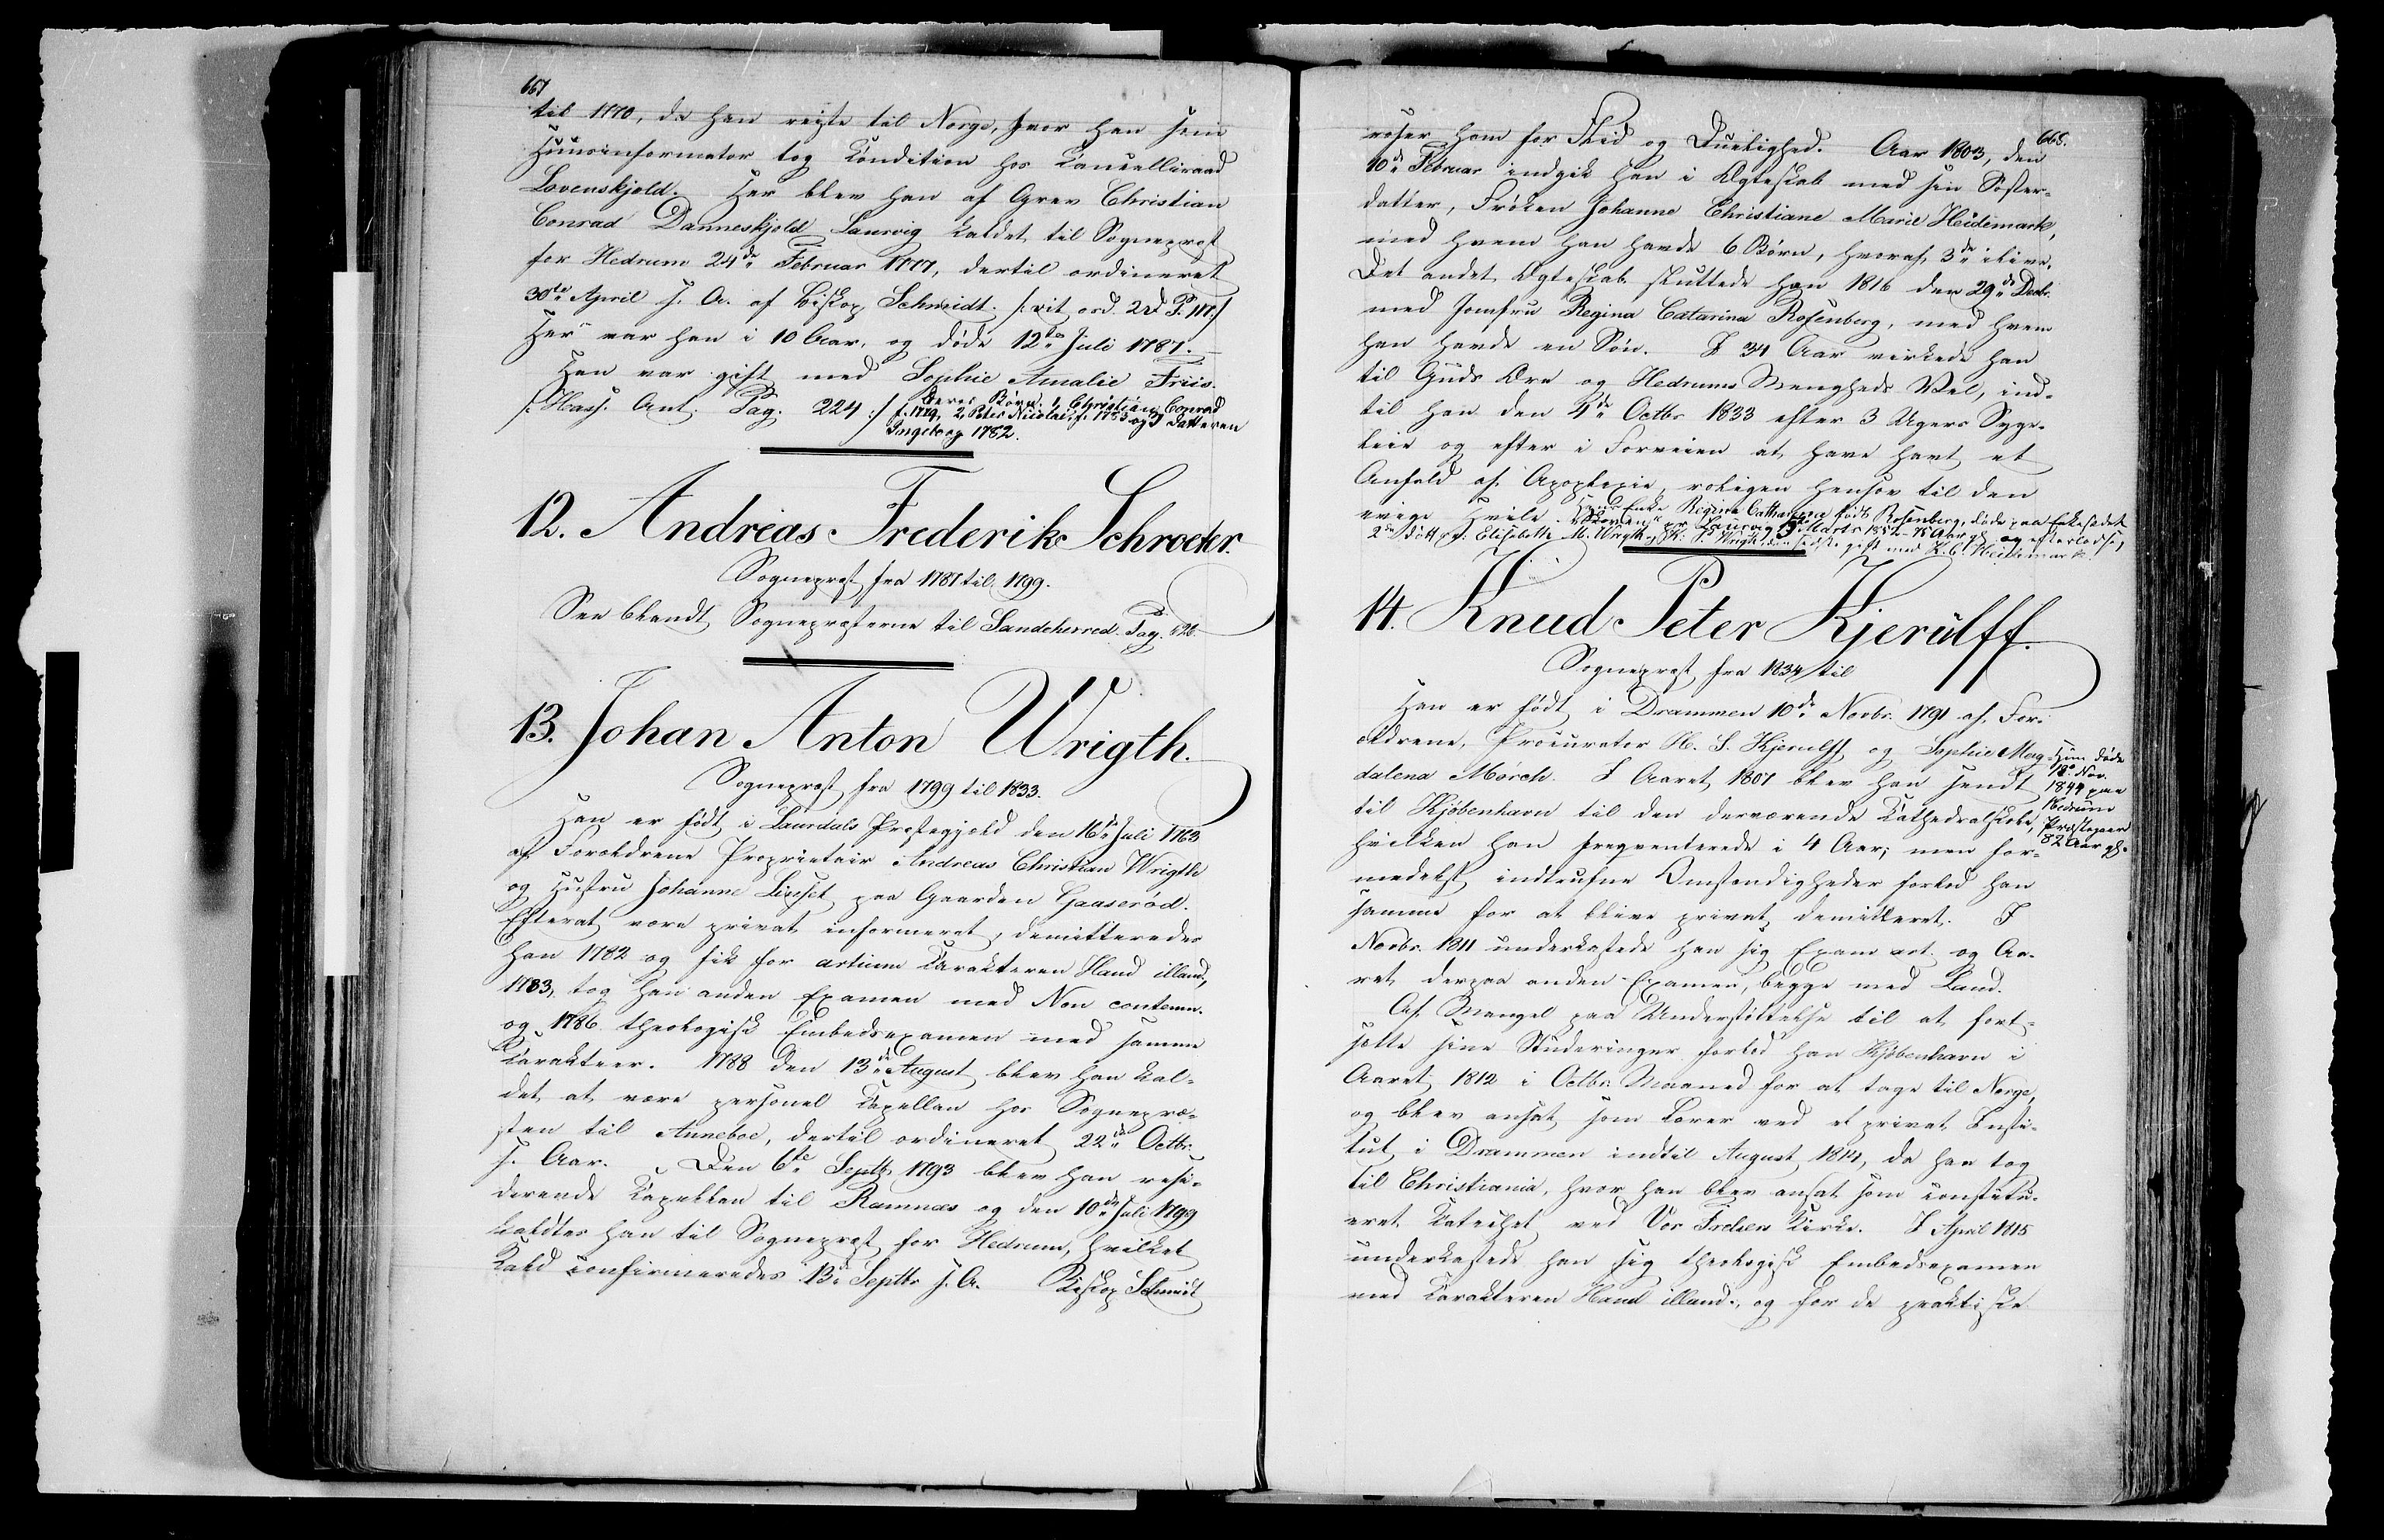 667
til 1770, da han reiste til Norge, hvor han som
Huusinformator tog Kondition hos Kancelliraad
Lovenskjold. Her blev han af Grev Christian
Conrad Danneskjold Laurvig kaldet til Sognepræst
for Hedrum 24de Februar 1777, dertil ordineret
30te April s. A. af Biskop Schmidt. /: vit. ord. 2d P. 117:/
Her var han i 10 Aar, og døde 12te Juli 1787.
Han var gift med Sophie Amalie Friis.
/: Hass. Ant. Pag. 224 :/ Deres Børn: 1, Christian Conrad
f. 1779, 2, Peter Nicolai, f. 1783 og 3 Datteren
Ingeborg 1782.
12. Andreas Frederik Schroeter.
Sognepræst fra 1787 til 1799.
See blandt Sognepræsterne til Sandeherred. Pag. 628.
13. Johan Anton Wrigth.
Sognepræst fra 1799 til 1833.
Han er født i Laurdals Præstegjæld den 16de Juli 1763
af Forældrene Proprietair Andreas Christian Wrigth
og Hustru Johanne Livset paa Gaarden Gaaserød.
Efterat være privat informeret, demitteredes
han 1782 og fik for artium Karakteren Haud illaud,
1783, tog han anden Examen med Non contemn.
og 1786 theologisk Embedsexamen med samme
Karakteer. 1788 den 13de August blev han kal-
det at være personel Kapellan hos Sognepræ-
sten til Anneboe, dertil ordineret 22de Octbr.
s. Aar. Den 6te Septb. 1793 blev han resi-
derende Kapellan til Ramnæs og den 10de Juli 1799
kaldtes han til Sognepræst for Hedrum, hvilket
Kald confirmeredes 13de Septbr s. A. Biskop Schmidt
668.
roser ham for Flid og Duelighed. Aar 1803, den
10de Februar indgik han i Ægteskab med sin Søster-
datter, Frøken Johanne Christiane Marie Heidemark,
med hvem han havde 6 Børn, hvoraf 3de ilive.
Det andet Ægteskab sluttede han 1816 den 29de Decbr.
med Jomfru Regina Catarina Rosenberg, med hvem
han havde en Søn. I 34 Aar virkede han
til Guds Ære og Hedrums Menigheds Vel, ind-
til han den 4de Octbr 1833 efter 3 Ugers Syge-
leie og efter i Forveien at have havt et
Anfald af Apoplexie, roligen hensov til den
evige Hvile. Hans Enke Regina Catharina født Rosenberg, døde paa Enkesædet
pr Laurvig 5te Marts 1852 - 75 Aar gl. og efterlod sig
2de Døttr: Elisabeth M. Wrigth, sidste gift med K. C. Heidemark.
14. Knud Peter Kjerülff.
Sognepræst fra 1834 til
Han er født i Drammen 10de Novbr. 1791 af For-
ældrene, Procurator H. S. Kjerulff og Sophie Mag-
dalena Mørch. I Aaret 1807 blev han sendt
til Kjøbenhavn til den derværende Kathedralskole,
hvilken han freqventerede i 4 Aar; men for-
medelst indtrufne Omstændigheder forlod han
samme for at blive privat demitteret. I
Novbr. 1811 underkastede han sig Exam art. og Aa-
ret derpaa anden Examen, begge med Laud.
Af Mangel paa Understøttelse til at fort-
sætte sine Studeringer forlod han Kjøbenhavn i
Aaret 1812 i Octbr. Maaned for at tage til Norge,
og blev ansat som Lærer ved et privat Insti-
tut i Drammen indtil August 1814, da han tog
til Christiania, hvor han blev ansat som constitu-
eret Katechet ved Vor Frelsers Kirke. I April 1815
underkastede han sig theologisk Embedsexamen
med Karakteren Haud illaud., og for de praktiske
Hun døde
12te Nov.
1844 paa
Hedrum
Præstegaard
82 Aar gl.